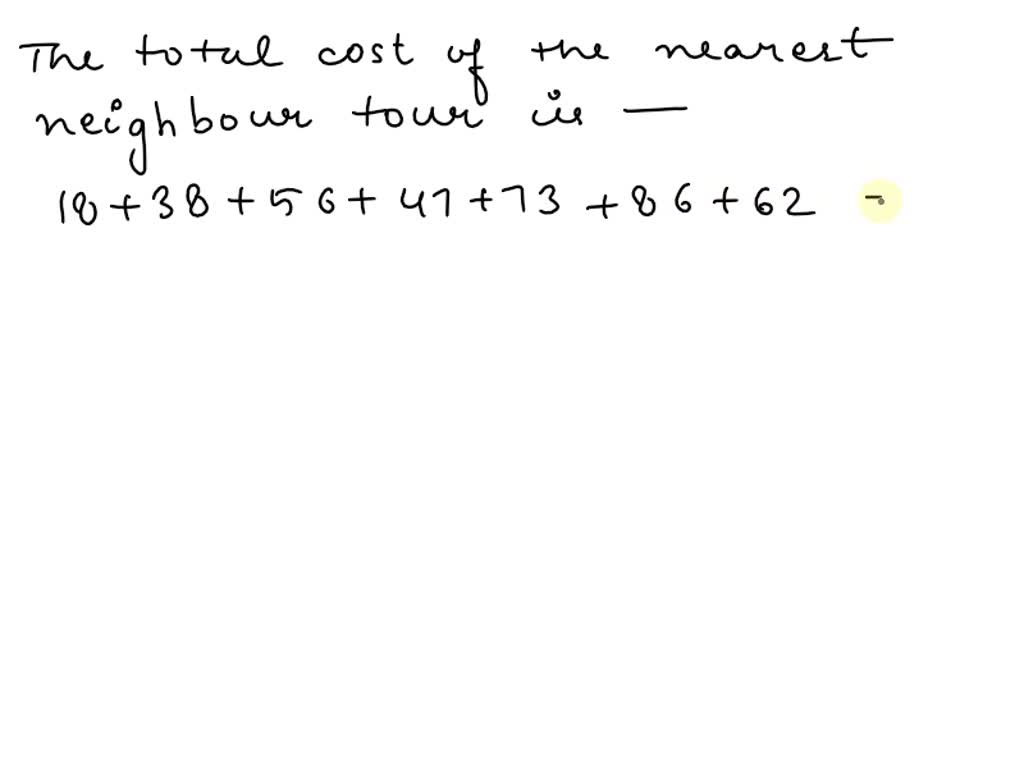 The total cost of the nearest
neighbour tour is —
18 + 38 + 56 + 47 + 73 + 86 + 62